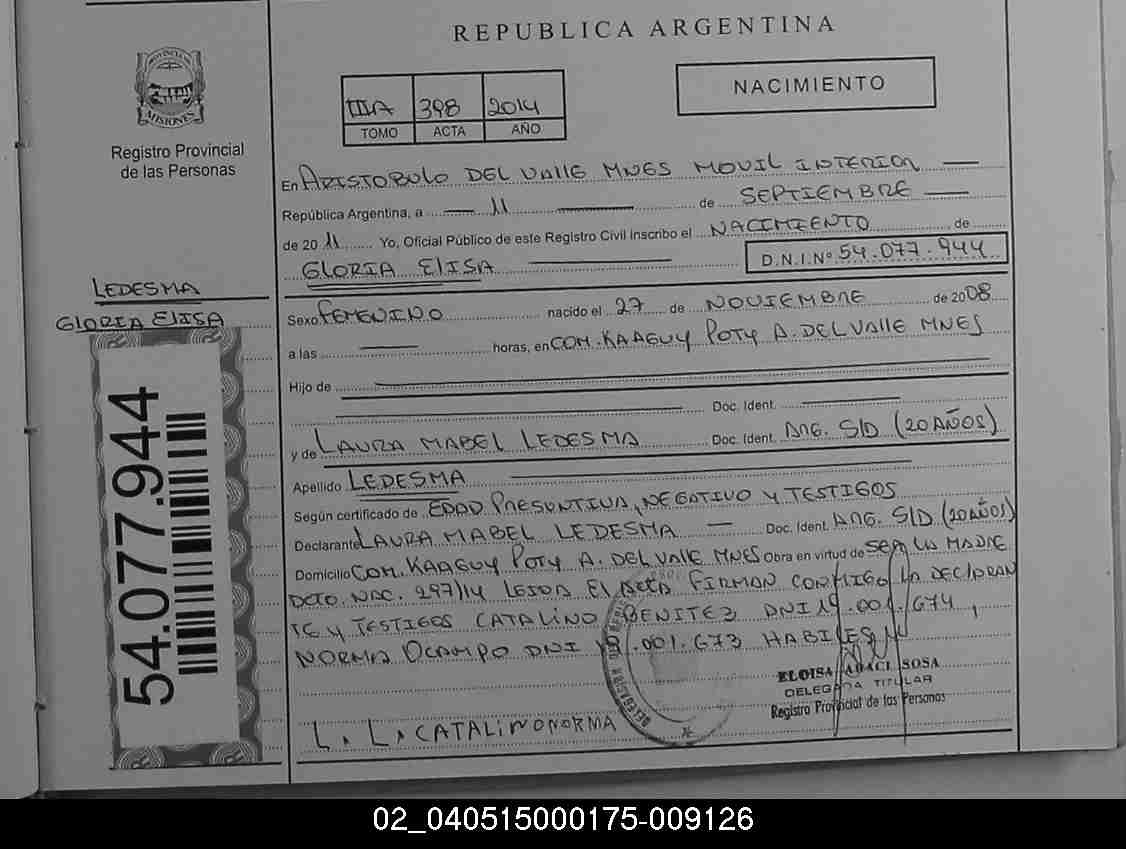 REPUBLICA ARGENTINA
PROVINCIA DE
MISIONES
Registro Provincial
de las Personas
IIIA 398 2014
TOMO ACTA AÑO
NACIMIENTO
En ARISTOBULO DEL VALLE MNES MOVIL INTERIOR
República Argentina, a 11 de SEPTIEMBRE
de 20 11 Yo, Oficial Público de este Registro Civil inscribo el NACIMIENTO de
GLORIA ELISA
D.N.I.Nº 54.077.944
LEDESMA
GLORIA ELISA
54.077.944
Sexo FEMENINO nacido el 27 de NOVIEMBRE de 2008
a las horas, en COM. KAAGUY POTY A. DEL VALLE MNES
Hijo de
Doc. Ident.
y de LAURA MABEL LEDESMA Doc. Ident. ARG. S/D (20 AÑOS)
Apellido LEDESMA
Según certificado de EDAD PRESUNTIVA, NEGATIVO Y TESTIGOS
Declarante LAURA MABEL LEDESMA Doc. Ident. ARG. S/D (20 AÑOS)
Domicilio COM. KAAGUY POTY A. DEL VALLE MNES Obra en virtud de SER LA MADRE
DCTO. NAC. 297/14 LEIDA EL ACTA FIRMAN CONMIGO LA DECLARAN
TE Y TESTIGOS CATALINO BENITEZ DNI 19.001.674,
NORMA OCAMPO DNI 19.001.673 HABILES
ELOISA SOSA
DELEGADA TITULAR
Registro Provincial de las Personas
L. L. CATALINO NORMA
02_040515000175-009126